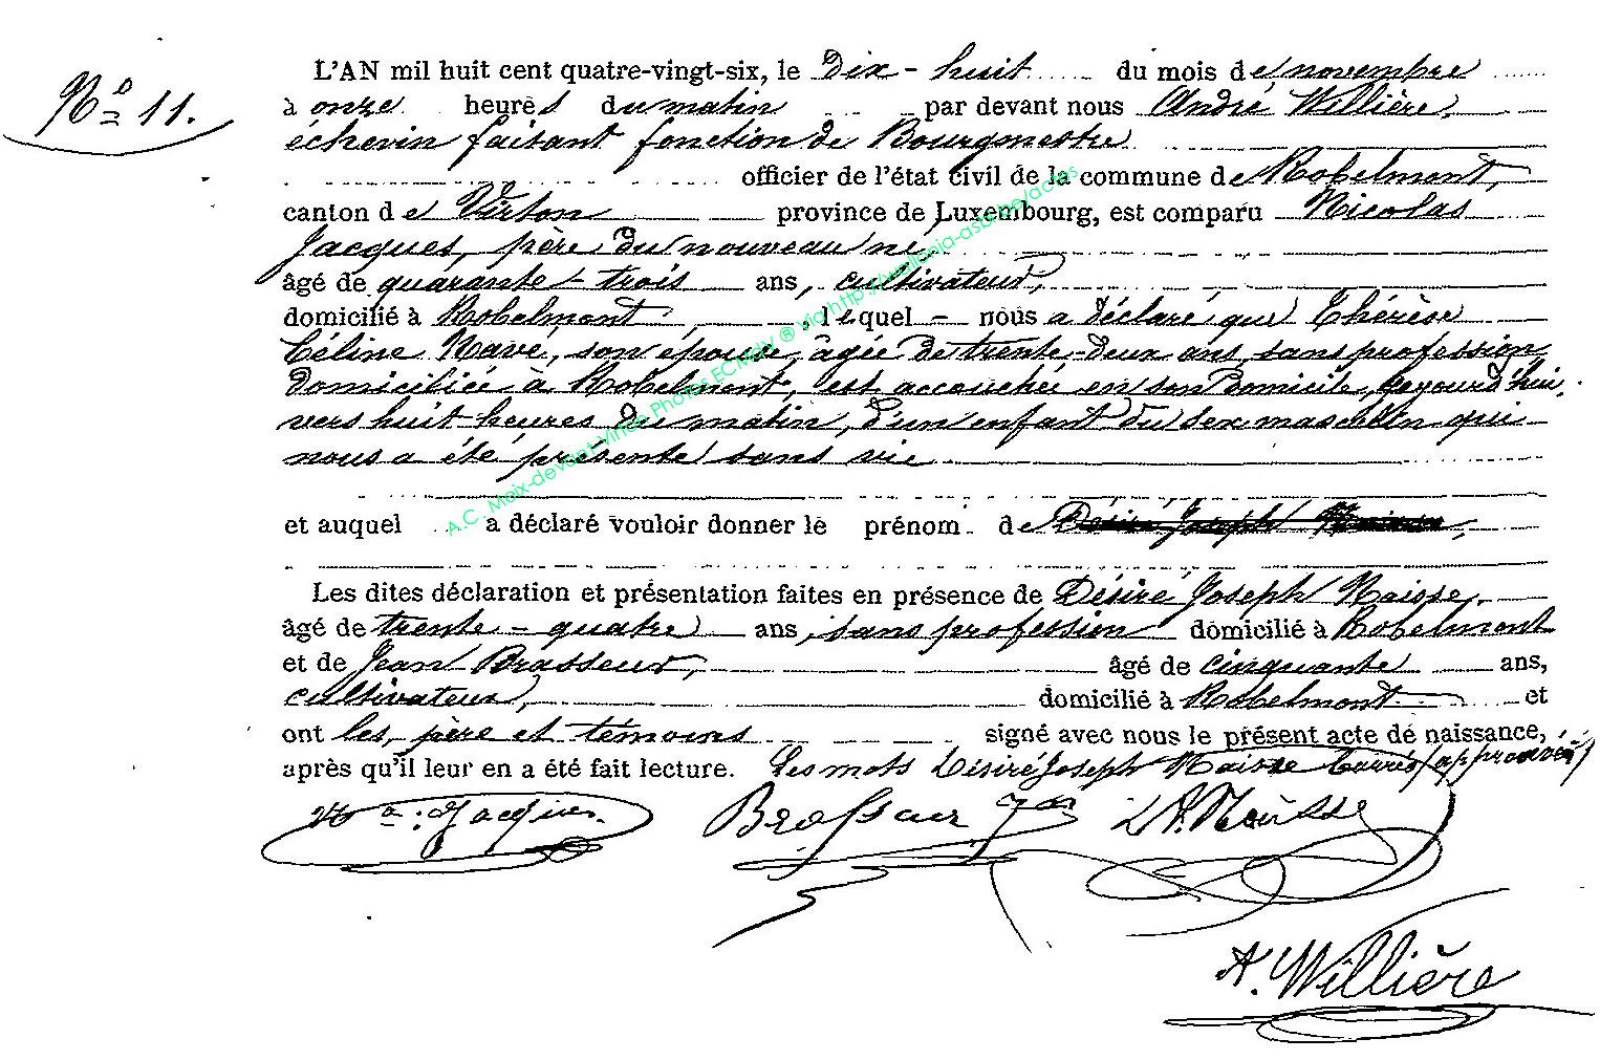 Nº 11.
L'AN mil huit cent quatre-vingt-six, le Dix-huit du mois de novembre
à onze heures du matin par devant nous André Willière,
échevin faisant fonction de Bourgmestre
officier de l'état civil de la commune de Robelmont,
canton de Virton province de Luxembourg, est comparu Nicolas
Jacques, père du nouveau né,
âgé de quarante-trois ans, cultivateur,
domicilié à Robelmont, lequel nous a déclaré que Thérèse
Céline Navé, son épouse, âgée de trente-deux ans, sans profession
domiciliée à Robelmont, est accouchée en son domicile, cejourd'hui,
vers huit heures du matin, d'un enfant du sexe masculin qui
nous a été présenté sans vie
et auquel a déclaré vouloir donner le prénom de Désiré Joseph
Les dites déclaration et présentation faites en présence de Désiré Joseph
âgé de trente-quatre ans, sans profession domicilié à Robelmont
et de Jean Brasseur, âgé de cinquante ans,
cultivateur, domicilié à Robelmont et
ont les, père et témoins signé avec nous le présent acte de naissance,
après qu'il leur en a été fait lecture. Les mots Désiré Joseph barrés approuvés
Jacques
Brasseur
A. Willière
A.C. Meix-devant-Virton Photos ECMdV ® via http://wallonia-asbl.be/actes